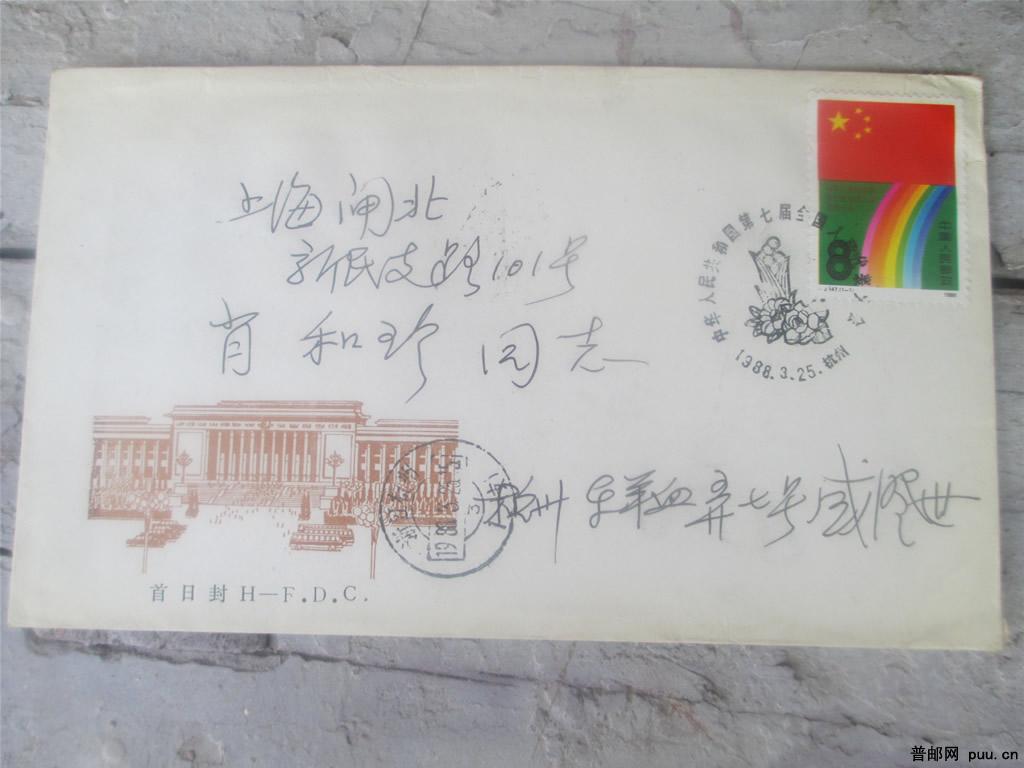 上海闸北
新民支路101号
肖和珍 同志
中华人民共和国第七届全国人
1988.3.25. 杭州
8
中国人民邮政
J.147.(1-1)
1988
杭州
弄七号
首日封 H—F.D.C.
普邮网 puu.cn